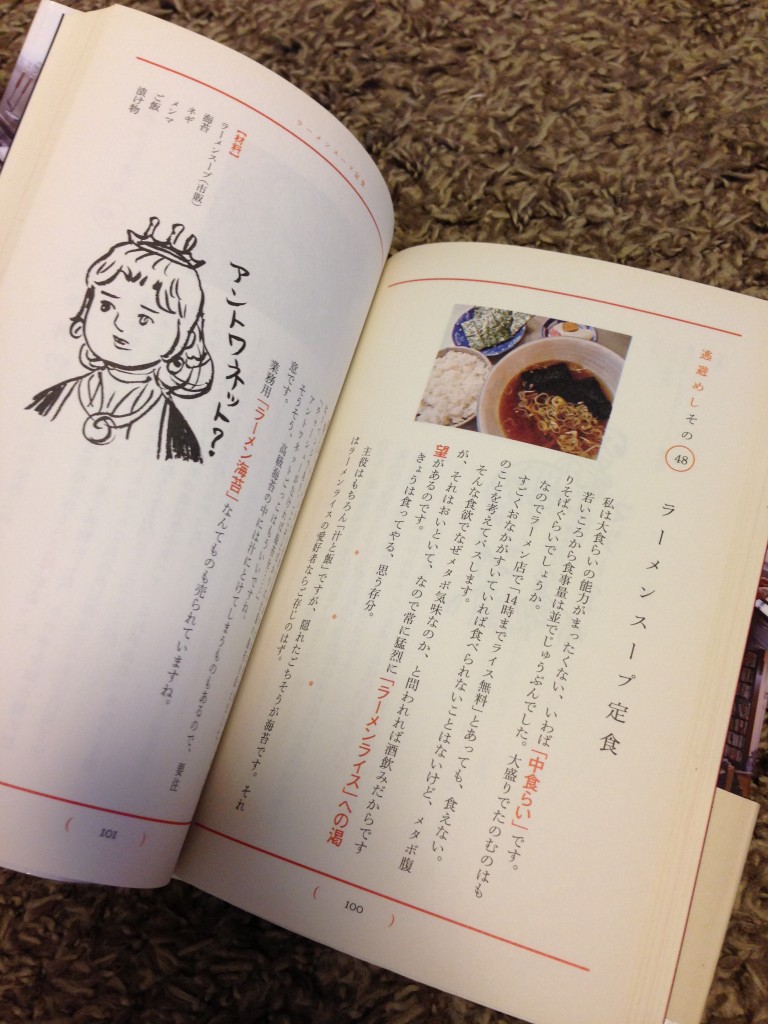 逃避めしその48
ラーメンスープ定食
私は大食らいの能力がまったくない、いわば「中食らい」です。
若いころから食事量は並でじゅうぶんでした。大盛りでたのむのはも
りそばぐらいでしょうか。
なのでラーメン店で「14時までライス無料」とあっても、食えない。
すごくおなかがすいていれば食べられないことはないけど、メタボ腹
のことを考えてパスします。
そんな食欲でなぜメタボ気味なのか、と問われれば酒飲みだからです
が、それはおいといて、なので常に猛烈に「ラーメンライス」への渇
望があるのです。
きょうは食ってやる、思う存分。
主役はもちろん「汁と飯」ですが、隠れたごちそうが海苔です。それ
はラーメンライスの愛好者ならご存じのはず。
100
ラーメンスープ定食
そうそう、高級海苔の中には汁にとけてしまうものもあるので、要注
意です。
業務用「ラーメン海苔」なんてものも売られていますね。
アントワネット?
【材料】
ラーメンスープ(市販)
海苔
ネギ
メンマ
ご飯
漬け物
101